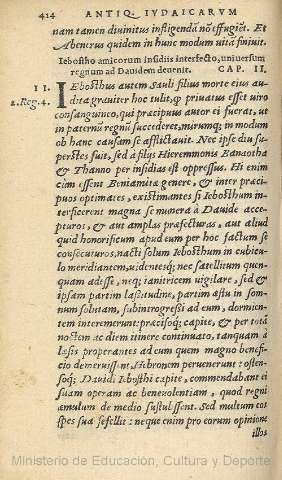 424 ANTIQ. IVDAICARVM
nam tamen diuinitus infligendā nō effugiet. Et
Abenerus quidem in hunc modum uita finiuit.
Iebostho amicorum insidiis interfecto, uniuersum
regnum ad Dauidem deuenit. CAP. II.
11. IEbosthus autem Sauli filius morte eius au-
2. Reg. 4. dita grauiter hoc tulit, quod priuatus esset uiro
consanguineo, qui præcipuus autor ei fuerat, ut
in paternū regnū succederet, mirumque in modum
ob hanc causam se afflictauit. Nec ipse diu su-
perstes fuit, sed à filiis Hieremmonis Banaotha
& Thanno per insidias est oppressus. Hi enim
cùm essent Beniamita genere, & inter præci-
puos optimates, existimantes si Iebosthum in-
terficerent magna se munera à Dauide acce-
pturos, & aut amplas præfecturas, aut aliud
quid honorificum apud eum per hoc factum se
cōsecuturos, nacti solum Iebosthum in cubicu-
lo meridiantem, uidentesque nec satellitum quen-
quam adesse, neque ianitricem uigilare, sed &
ipsam partim lassitudine, partim æstu in som-
num solutam, subingressi ad eum, dormien-
tem interemerunt: præcisoque capite, & per totā
noctem ac diem itinere continuato, tanquam à
læsis properantes ad eum quem magno benefi-
cio demeruissent, Hebronem peruenerunt: osten-
soque Dauidi Iebosthi capite, commendabant ei
suam operam ac beneuolentiam, quod regni
æmulum de medio sustulissent. Sed multum eos
spes sua fefellit: neque enim pro eorum opinione
illos
Ministerio de Educación, Cultura y Deporte